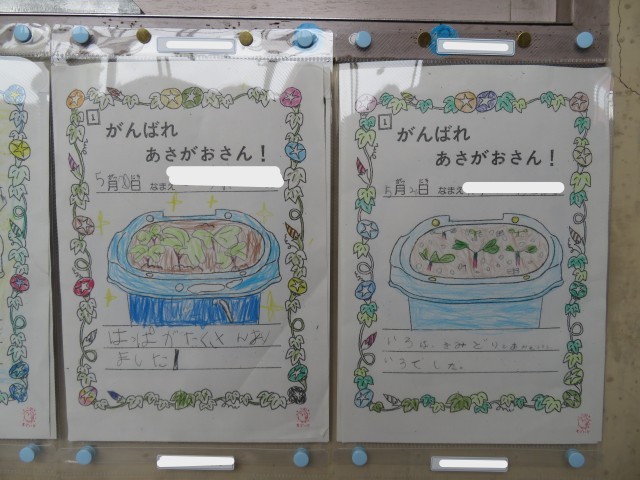 1
がんばれ
あさがおさん！
5月
日
なまえ
はっぱがたくさんあり
ました
1
がんばれ
あさがおさん！
5月
日
なまえ
いろは、きみどり
いろでした。